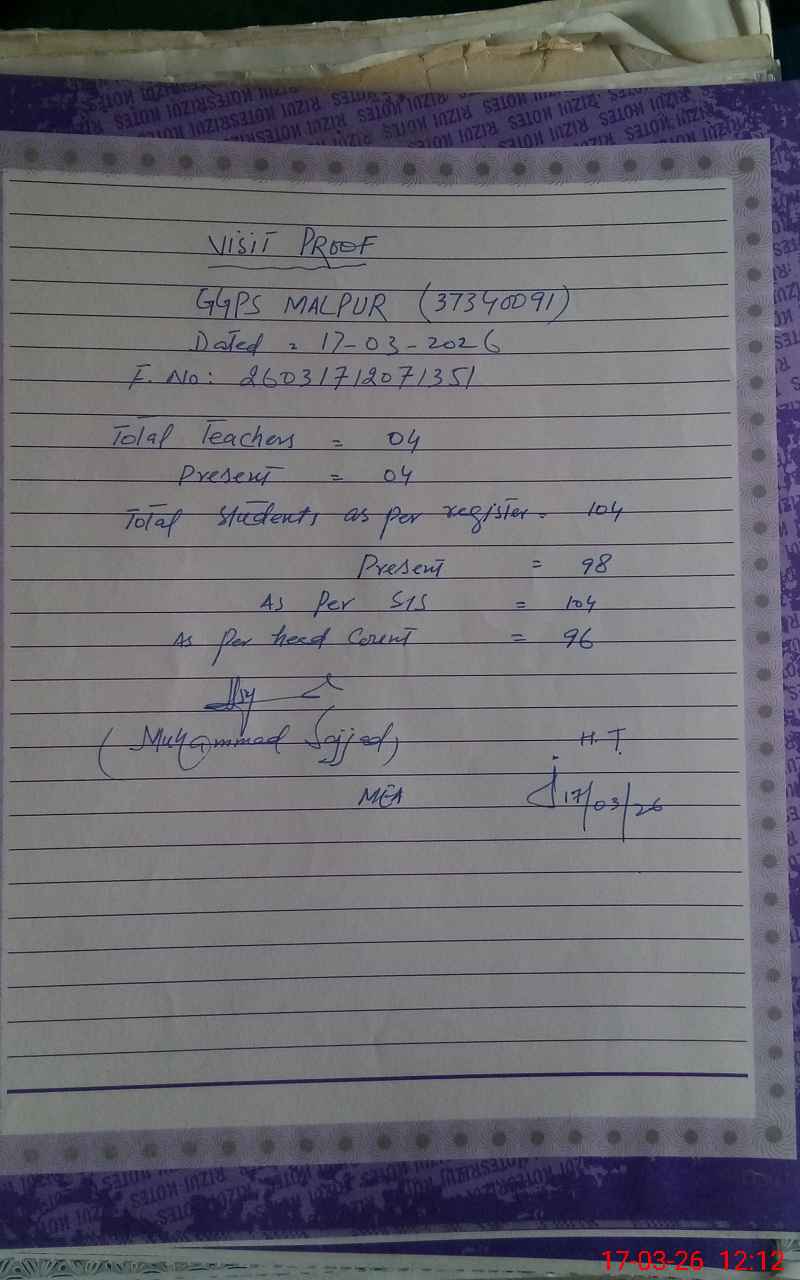 RIZUI NOTES RIZUI NOTES RIZUI NOTES
VISIT PROOF
GGPS MALPUR (37340091)
Dated = 17-03-2026
F. No: 26031712071351
Total Teachers = 04
Present = 04
Total Students as per register = 104
Present = 98
As Per SIS = 104
As per head Count = 96
(Muhammad Sajjad)
H.T.
MEA
17/03/26
17-03-26 12:12